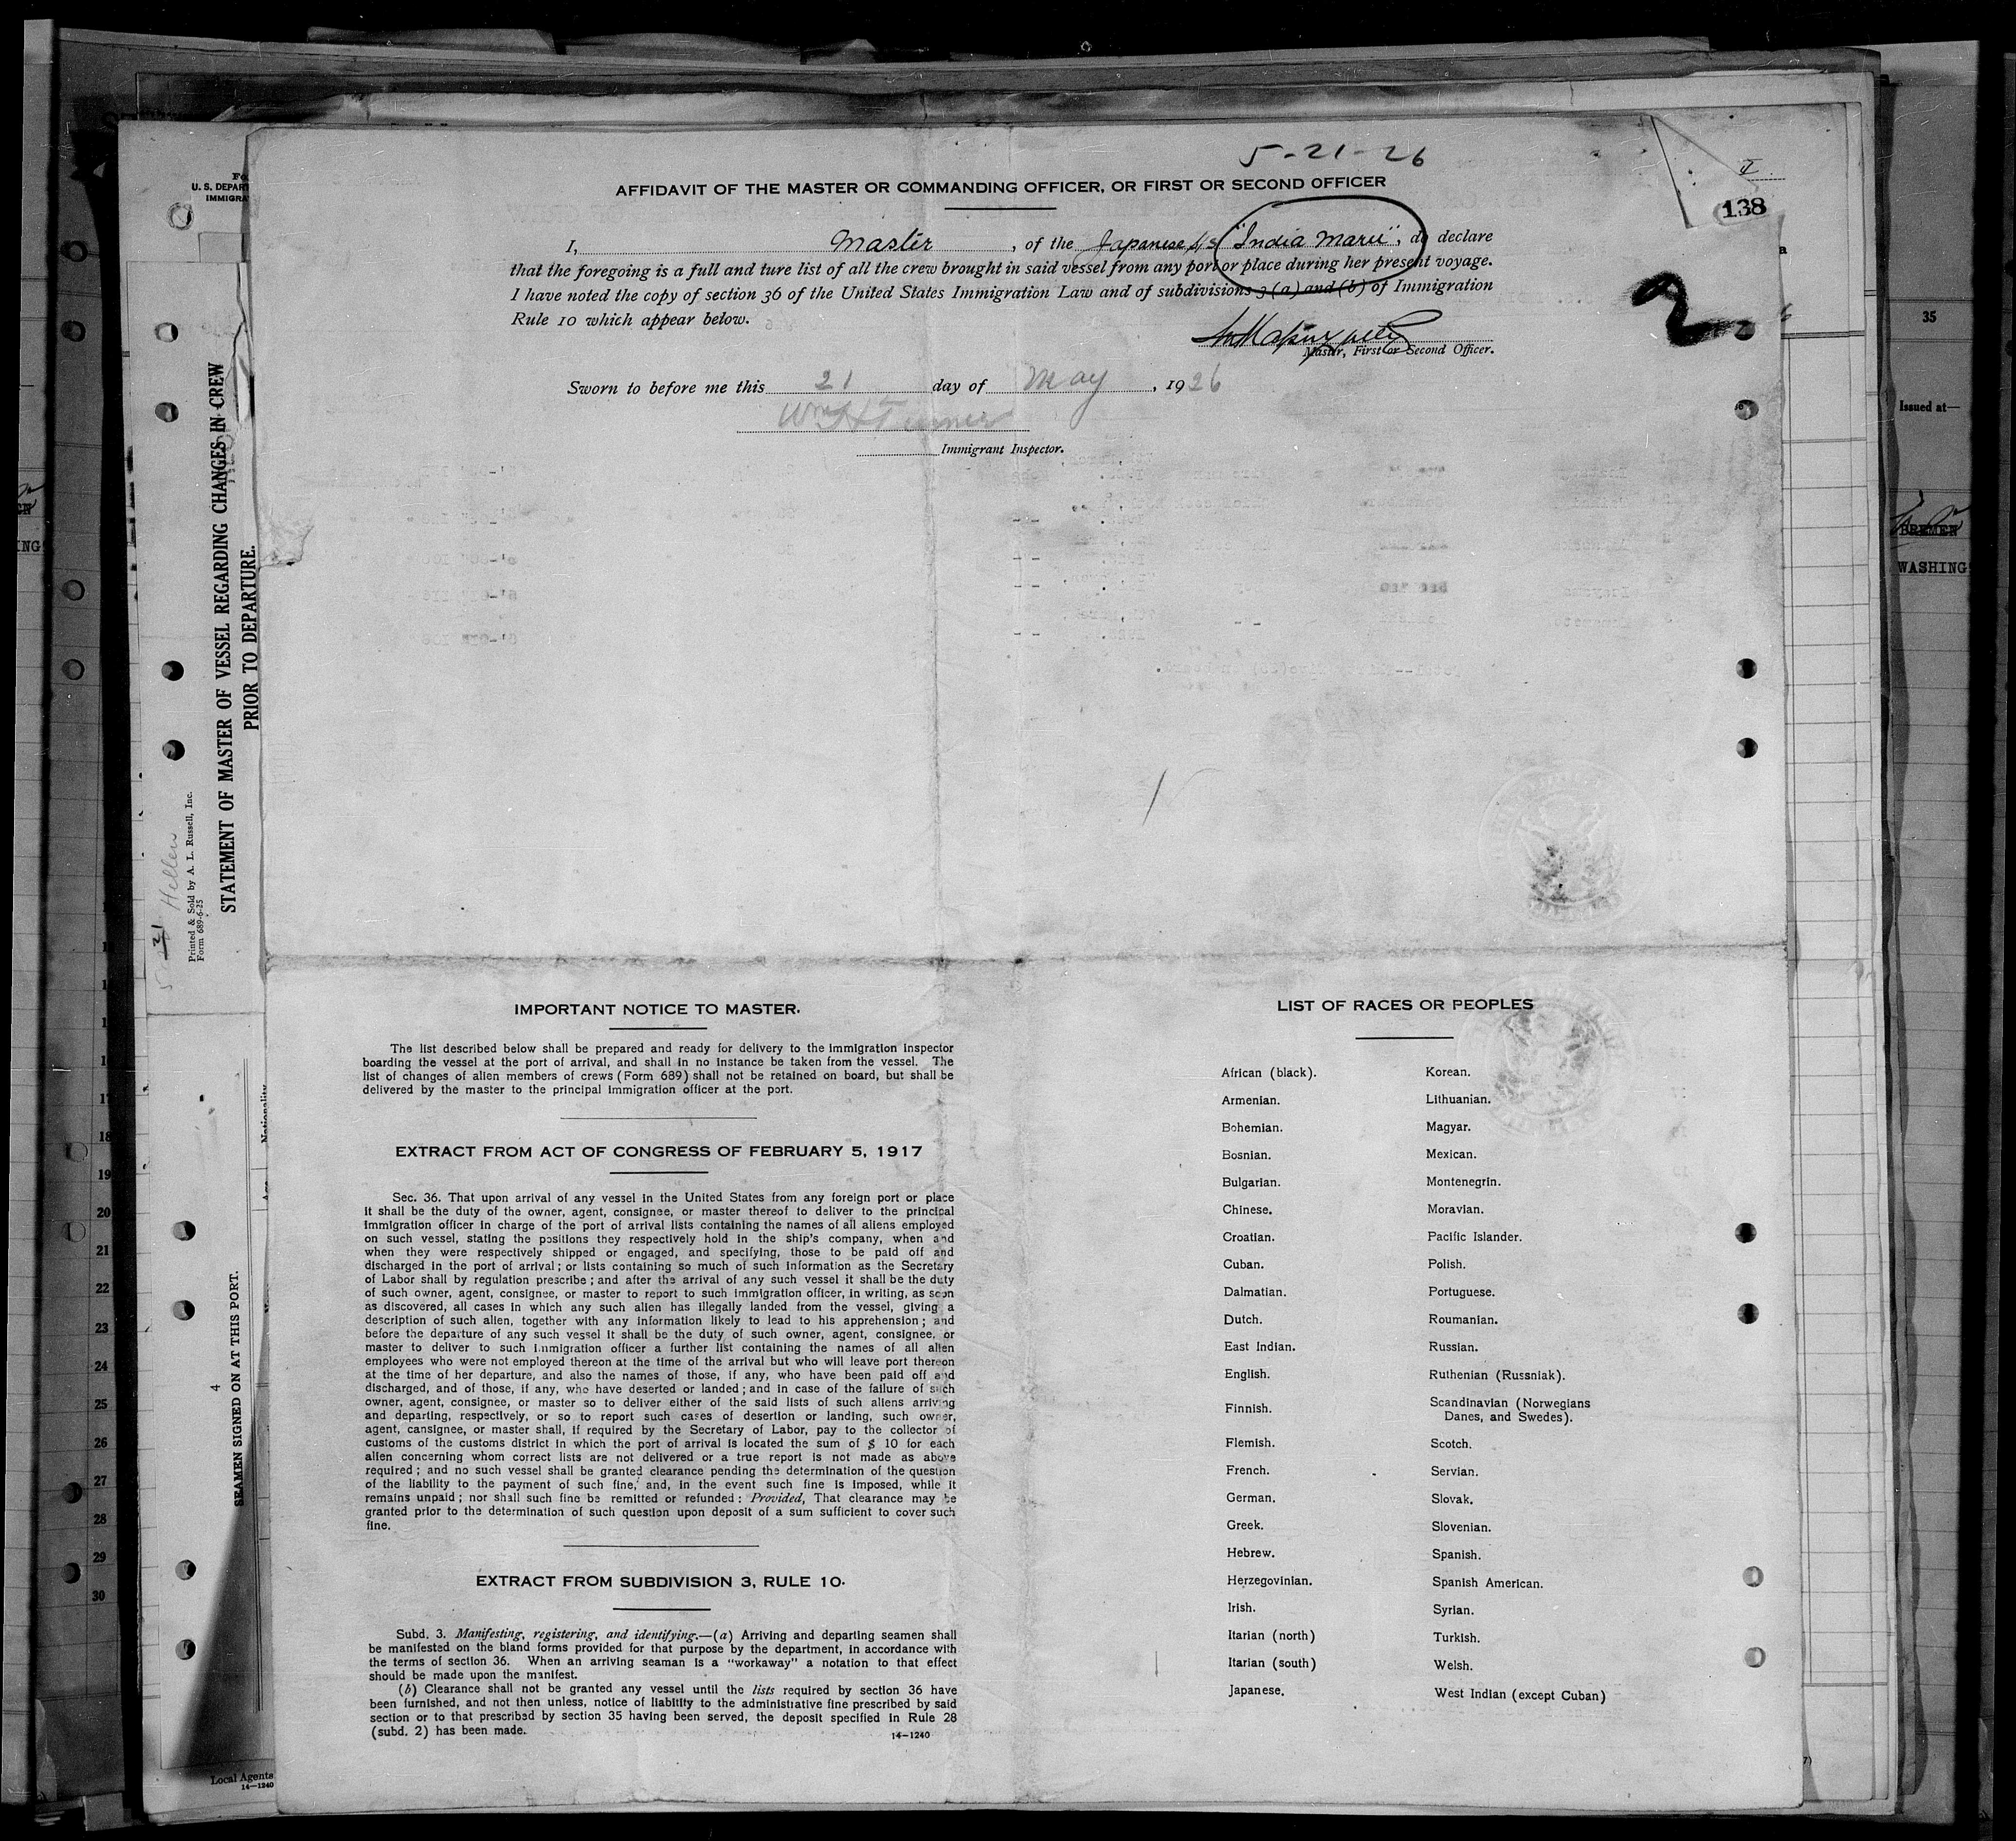 5-21-26
AFFIDAVIT OF THE MASTER OR COMMANDING OFFICER, OR FIRST OR SECOND OFFICER
138
I, Master, of the Japanese s/s "India Maru", do declare
that the foregoing is a full and ture list of all the crew brought in said vessel from any port or place during her present voyage.
I have noted the copy of section 36 of the United States Immigration Law and of subdivisions 3 (a) and (b) of Immigration
Rule 10 which appear below.
2
Master, First or Second Officer.
Sworn to before me this 21 day of May, 1926
Wm H Turner
Immigrant Inspector.
IMPORTANT NOTICE TO MASTER.
The list described below shall be prepared and ready for delivery to the immigration inspector
boarding the vessel at the port of arrival, and shall in no instance be taken from the vessel. The
list of changes of alien members of crews (Form 689) shall not be retained on board, but shall be
delivered by the master to the principal immigration officer at the port.
EXTRACT FROM ACT OF CONGRESS OF FEBRUARY 5, 1917
Sec. 36. That upon arrival of any vessel in the United States from any foreign port or place
it shall be the duty of the owner, agent, consignee, or master thereof to deliver to the principal
immigration officer in charge of the port of arrival lists containing the names of all aliens employed
on such vessel, stating the positions they respectively hold in the ship's company, when and
when they were respectively shipped or engaged, and specifying, those to be paid off and
discharged in the port of arrival; or lists containing so much of such information as the Secretary
of Labor shall by regulation prescribe; and after the arrival of any such vessel it shall be the duty
of such owner, agent, consignee, or master to report to such immigration officer, in writing, as soon
as discovered, all cases in which any such alien has illegally landed from the vessel, giving a
description of such alien, together with any information likely to lead to his apprehension; and
before the departure of any such vessel it shall be the duty of such owner, agent, consignee, or
master to deliver to such immigration officer a further list containing the names of all alien
employees who were not employed thereon at the time of the arrival but who will leave port thereon
at the time of her departure, and also the names of those, if any, who have been paid off and
discharged, and of those, if any, who have deserted or landed; and in case of the failure of such
owner, agent, consignee, or master so to deliver either of the said lists of such aliens arriving
and departing, respectively, or so to report such cases of desertion or landing, such owner,
agent, cansignee, or master shall, if required by the Secretary of Labor, pay to the collector of
customs of the customs district in which the port of arrival is located the sum of $ 10 for each
alien concerning whom correct lists are not delivered or a true report is not made as above
required; and no such vessel shall be granted clearance pending the determination of the question
of the liability to the payment of such fine, and, in the event such fine is imposed, while it
remains unpaid; nor shall such fine be remitted or refunded: Provided, That clearance may be
granted prior to the determination of such question upon deposit of a sum sufficient to cover such
fine.
EXTRACT FROM SUBDIVISION 3, RULE 10.
Subd. 3. Manifesting, registering, and identifying.—(a) Arriving and departing seamen shall
be manifested on the bland forms provided for that purpose by the department, in accordance with
the terms of section 36. When an arriving seaman is a "workaway" a notation to that effect
should be made upon the manifest.
(b) Clearance shall not be granted any vessel until the lists required by section 36 have
been furnished, and not then unless, notice of liability to the administrative fine prescribed by said
section or to that prescribed by section 35 having been served, the deposit specified in Rule 28
(subd. 2) has been made.
14—1240
LIST OF RACES OR PEOPLES
African (black).
Armenian.
Bohemian.
Bosnian.
Bulgarian.
Chinese.
Croatian.
Cuban.
Dalmatian.
Dutch.
East Indian.
English.
Finnish.
Flemish.
French.
German.
Greek.
Hebrew.
Herzegovinian.
Irish.
Itarian (north)
Itarian (south)
Japanese.
Korean.
Lithuanian.
Magyar.
Mexican.
Montenegrin.
Moravian.
Pacific Islander.
Polish.
Portuguese.
Roumanian.
Russian.
Ruthenian (Russniak).
Scandinavian (Norwegians
Danes, and Swedes).
Scotch.
Servian.
Slovak.
Slovenian.
Spanish.
Spanish American.
Syrian.
Turkish.
Welsh.
West Indian (except Cuban)
U. S. DEPART
IMMIGRA
STATEMENT OF MASTER OF VESSEL REGARDING CHANGES IN CREW
PRIOR TO DEPARTURE.
Printed & Sold by A. L. Russell, Inc.
Form 689-6-25
Hellen
4
SEAMEN SIGNED ON AT THIS PORT.
Nationality
Local Agents
14—1240
18
19
20
21
22
23
24
25
26
27
28
29
30
35
Issued at—
BREMEN
WASHING
ING